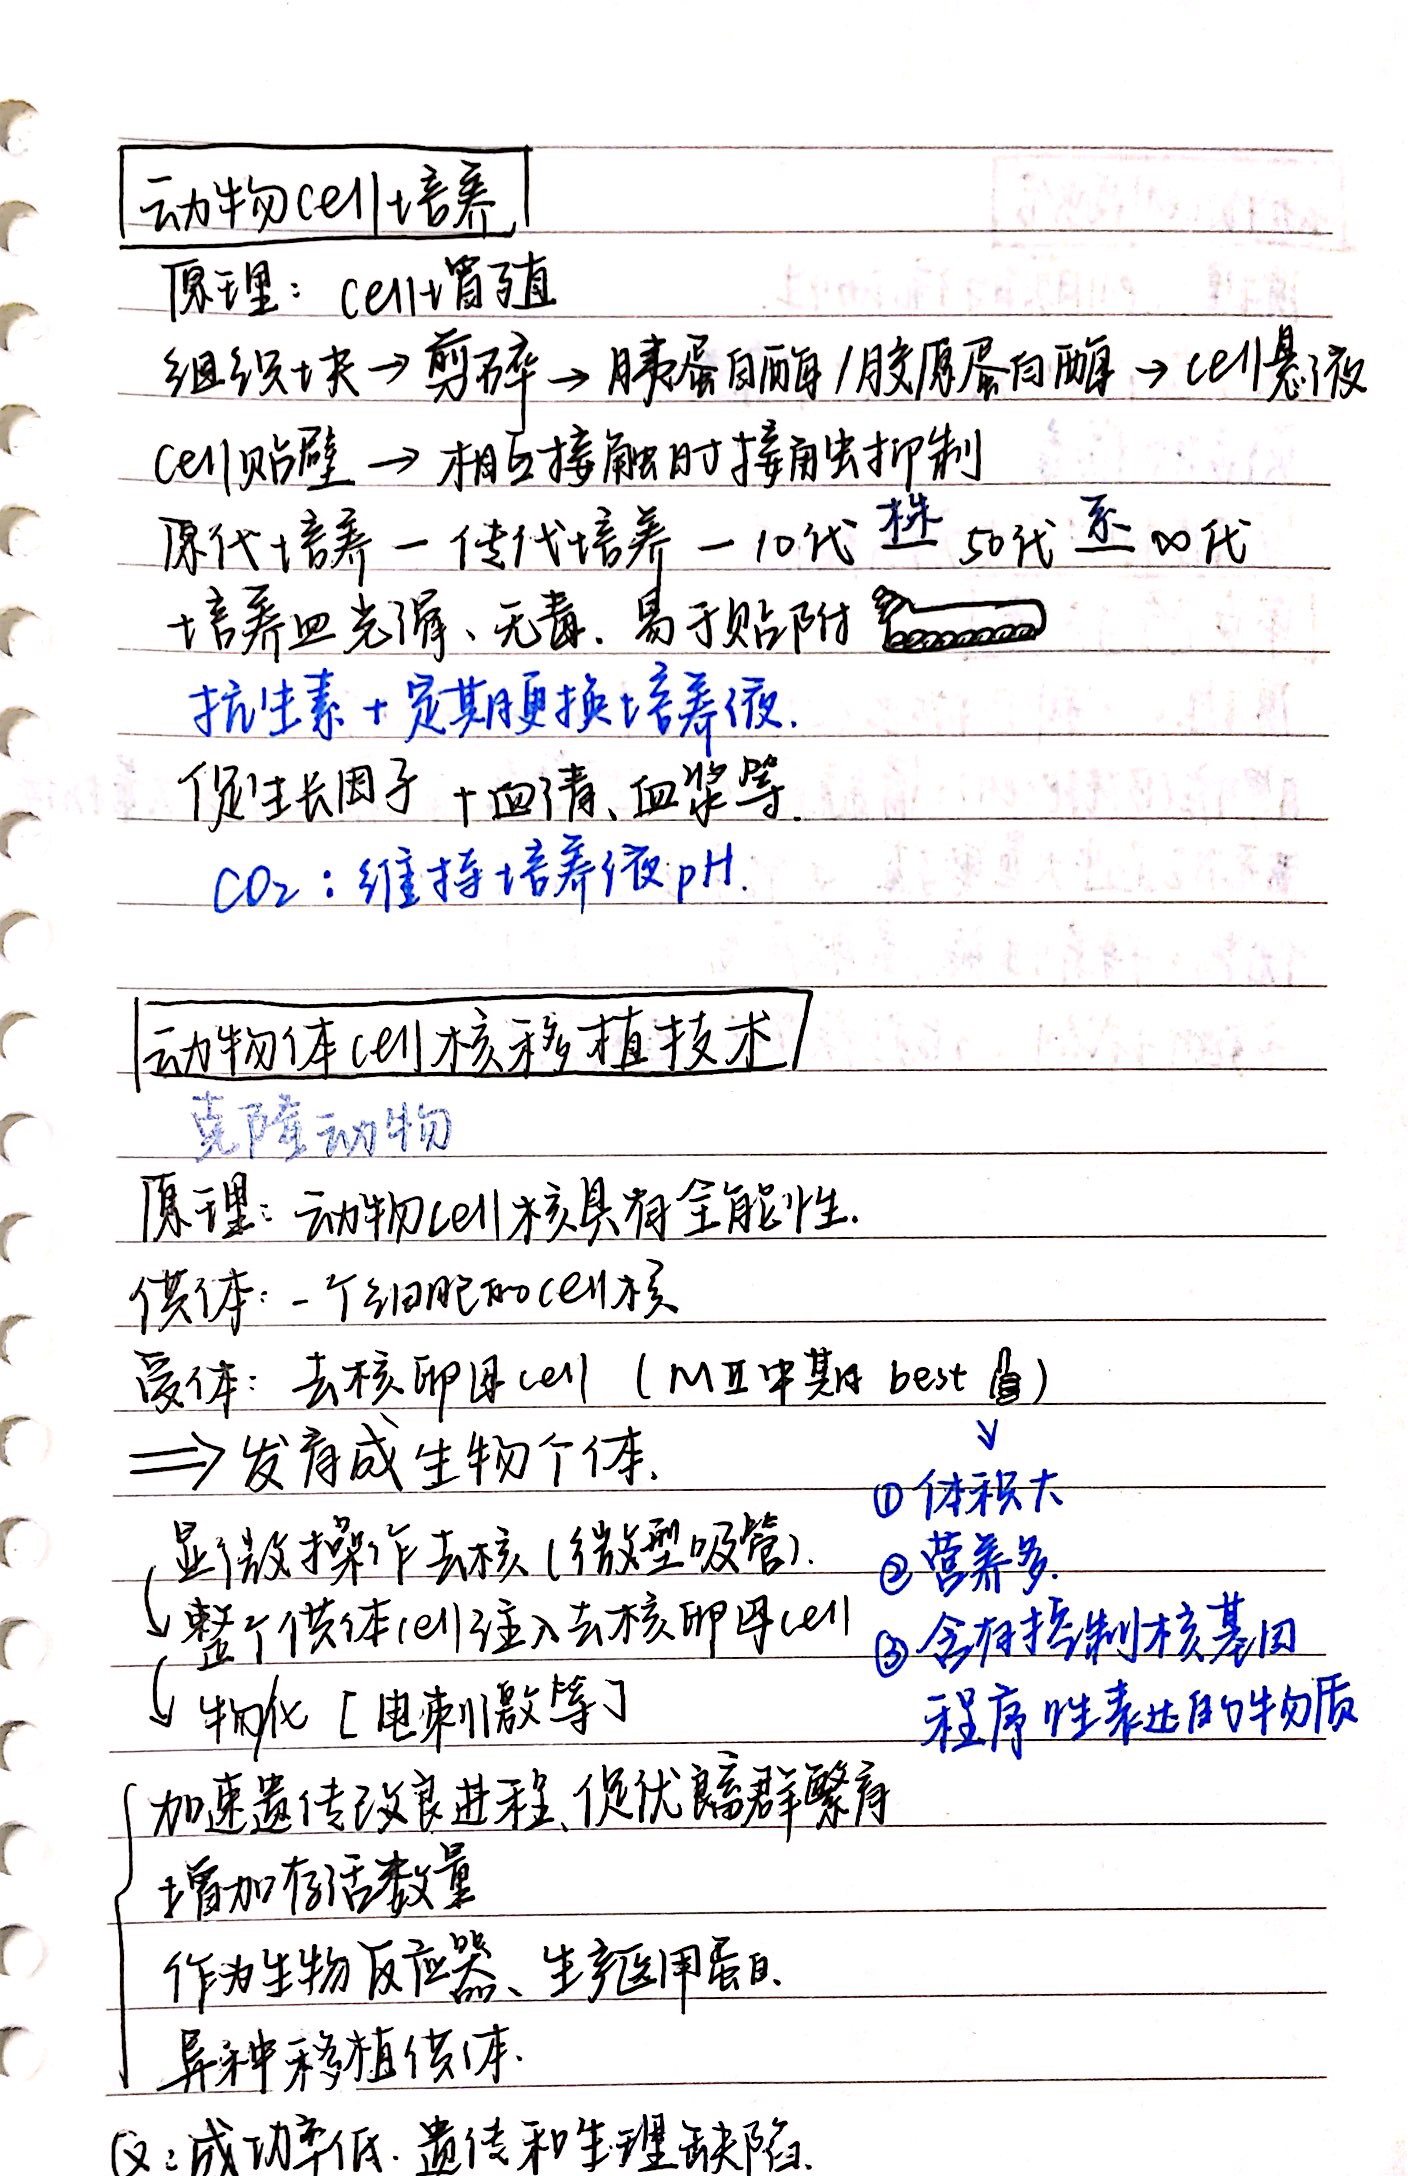 动物cell培养
原理：cell增殖
组织块→剪碎→胰蛋白酶/胶原蛋白酶→cell悬液
cell贴壁→相互接触时接触抑制
原代培养—传代培养—10代 株 50代 系 ∞代
培养皿光滑、无毒、易于贴附
抗生素+定期更换培养液.
促生长因子+血清、血浆等.
CO₂：维持培养液pH.
动物体cell核移植技术
克隆动物
原理：动物cell核具有全能性.
供体：一个细胞的cell核
受体：去核卵母cell（MⅡ中期best）
⇒发育成生物个体.
①体积大
显微操作去核（微型吸管）.
②营养多.
整个供体cell注入去核卵母cell
③含有控制核基因
物/化[电刺激等]
程序性表达的物质
加速遗传改良进程、促优良畜群繁育
增加存活数量
作为生物反应器、生产医用蛋白.
异种移植供体.
Q：成功率低.遗传和生理缺陷.